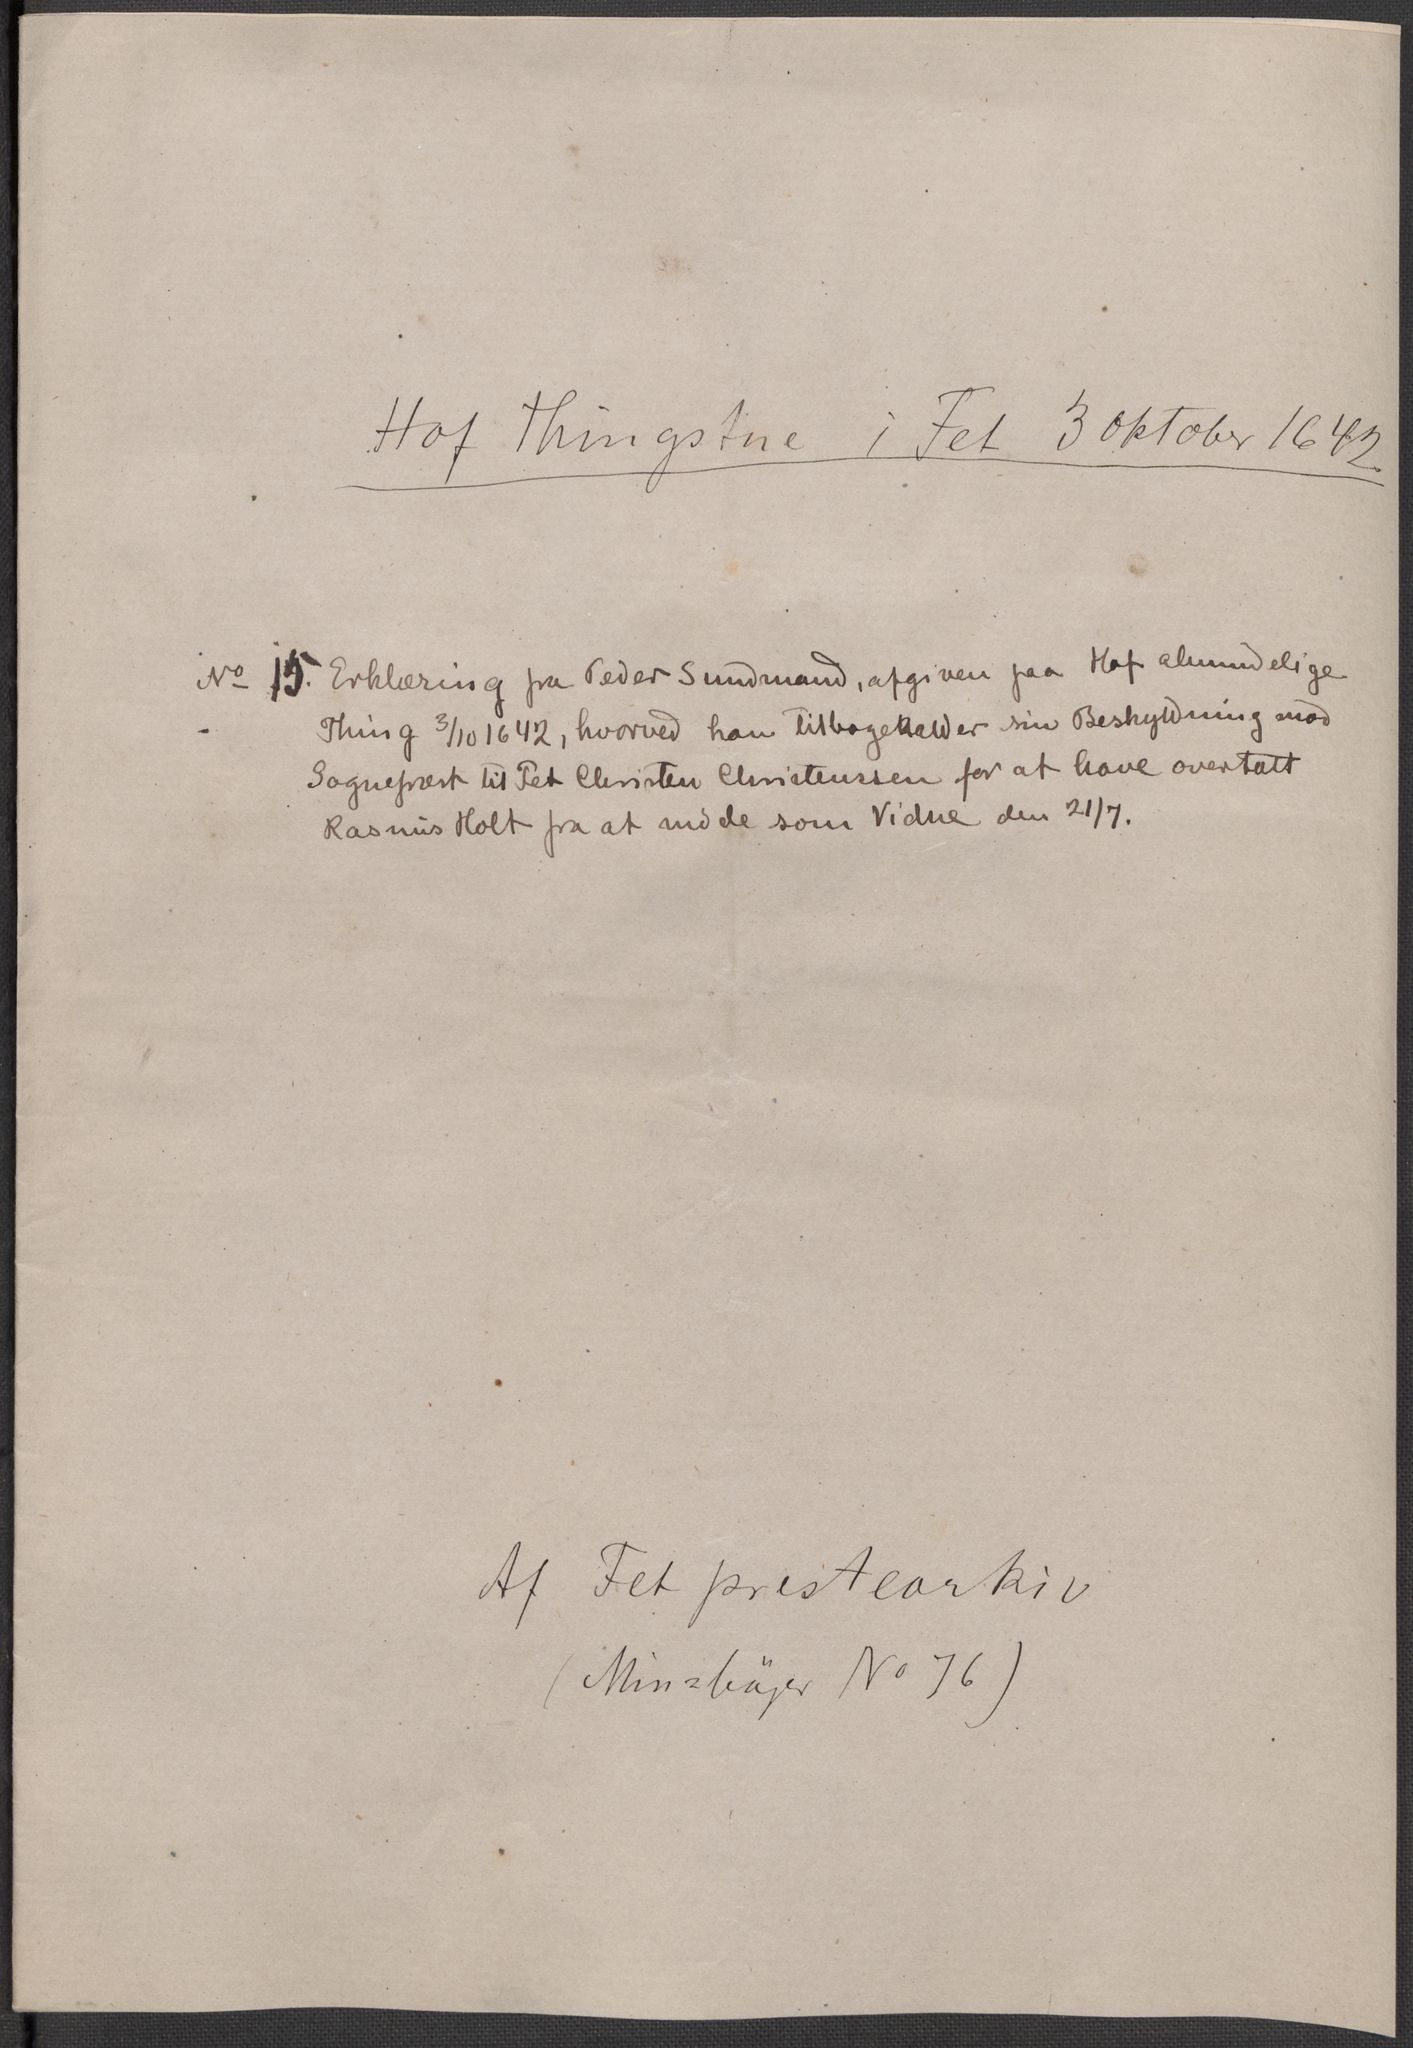 Hof Thingstue i Fet 3 Oktober 1642.
No 15. Erklæring fra Peder Sundmand, afgiven paa Hof almindelige
Thing 3/10 1642, hvorved han tilbagekalder sin Beskyldning mod
Sogneprest til Fet Christen Christenssen for at have overtalt
Rasmus Holt fra at möde som Vidne den 21/7.
Af Fet prestearkiv
( No 76)